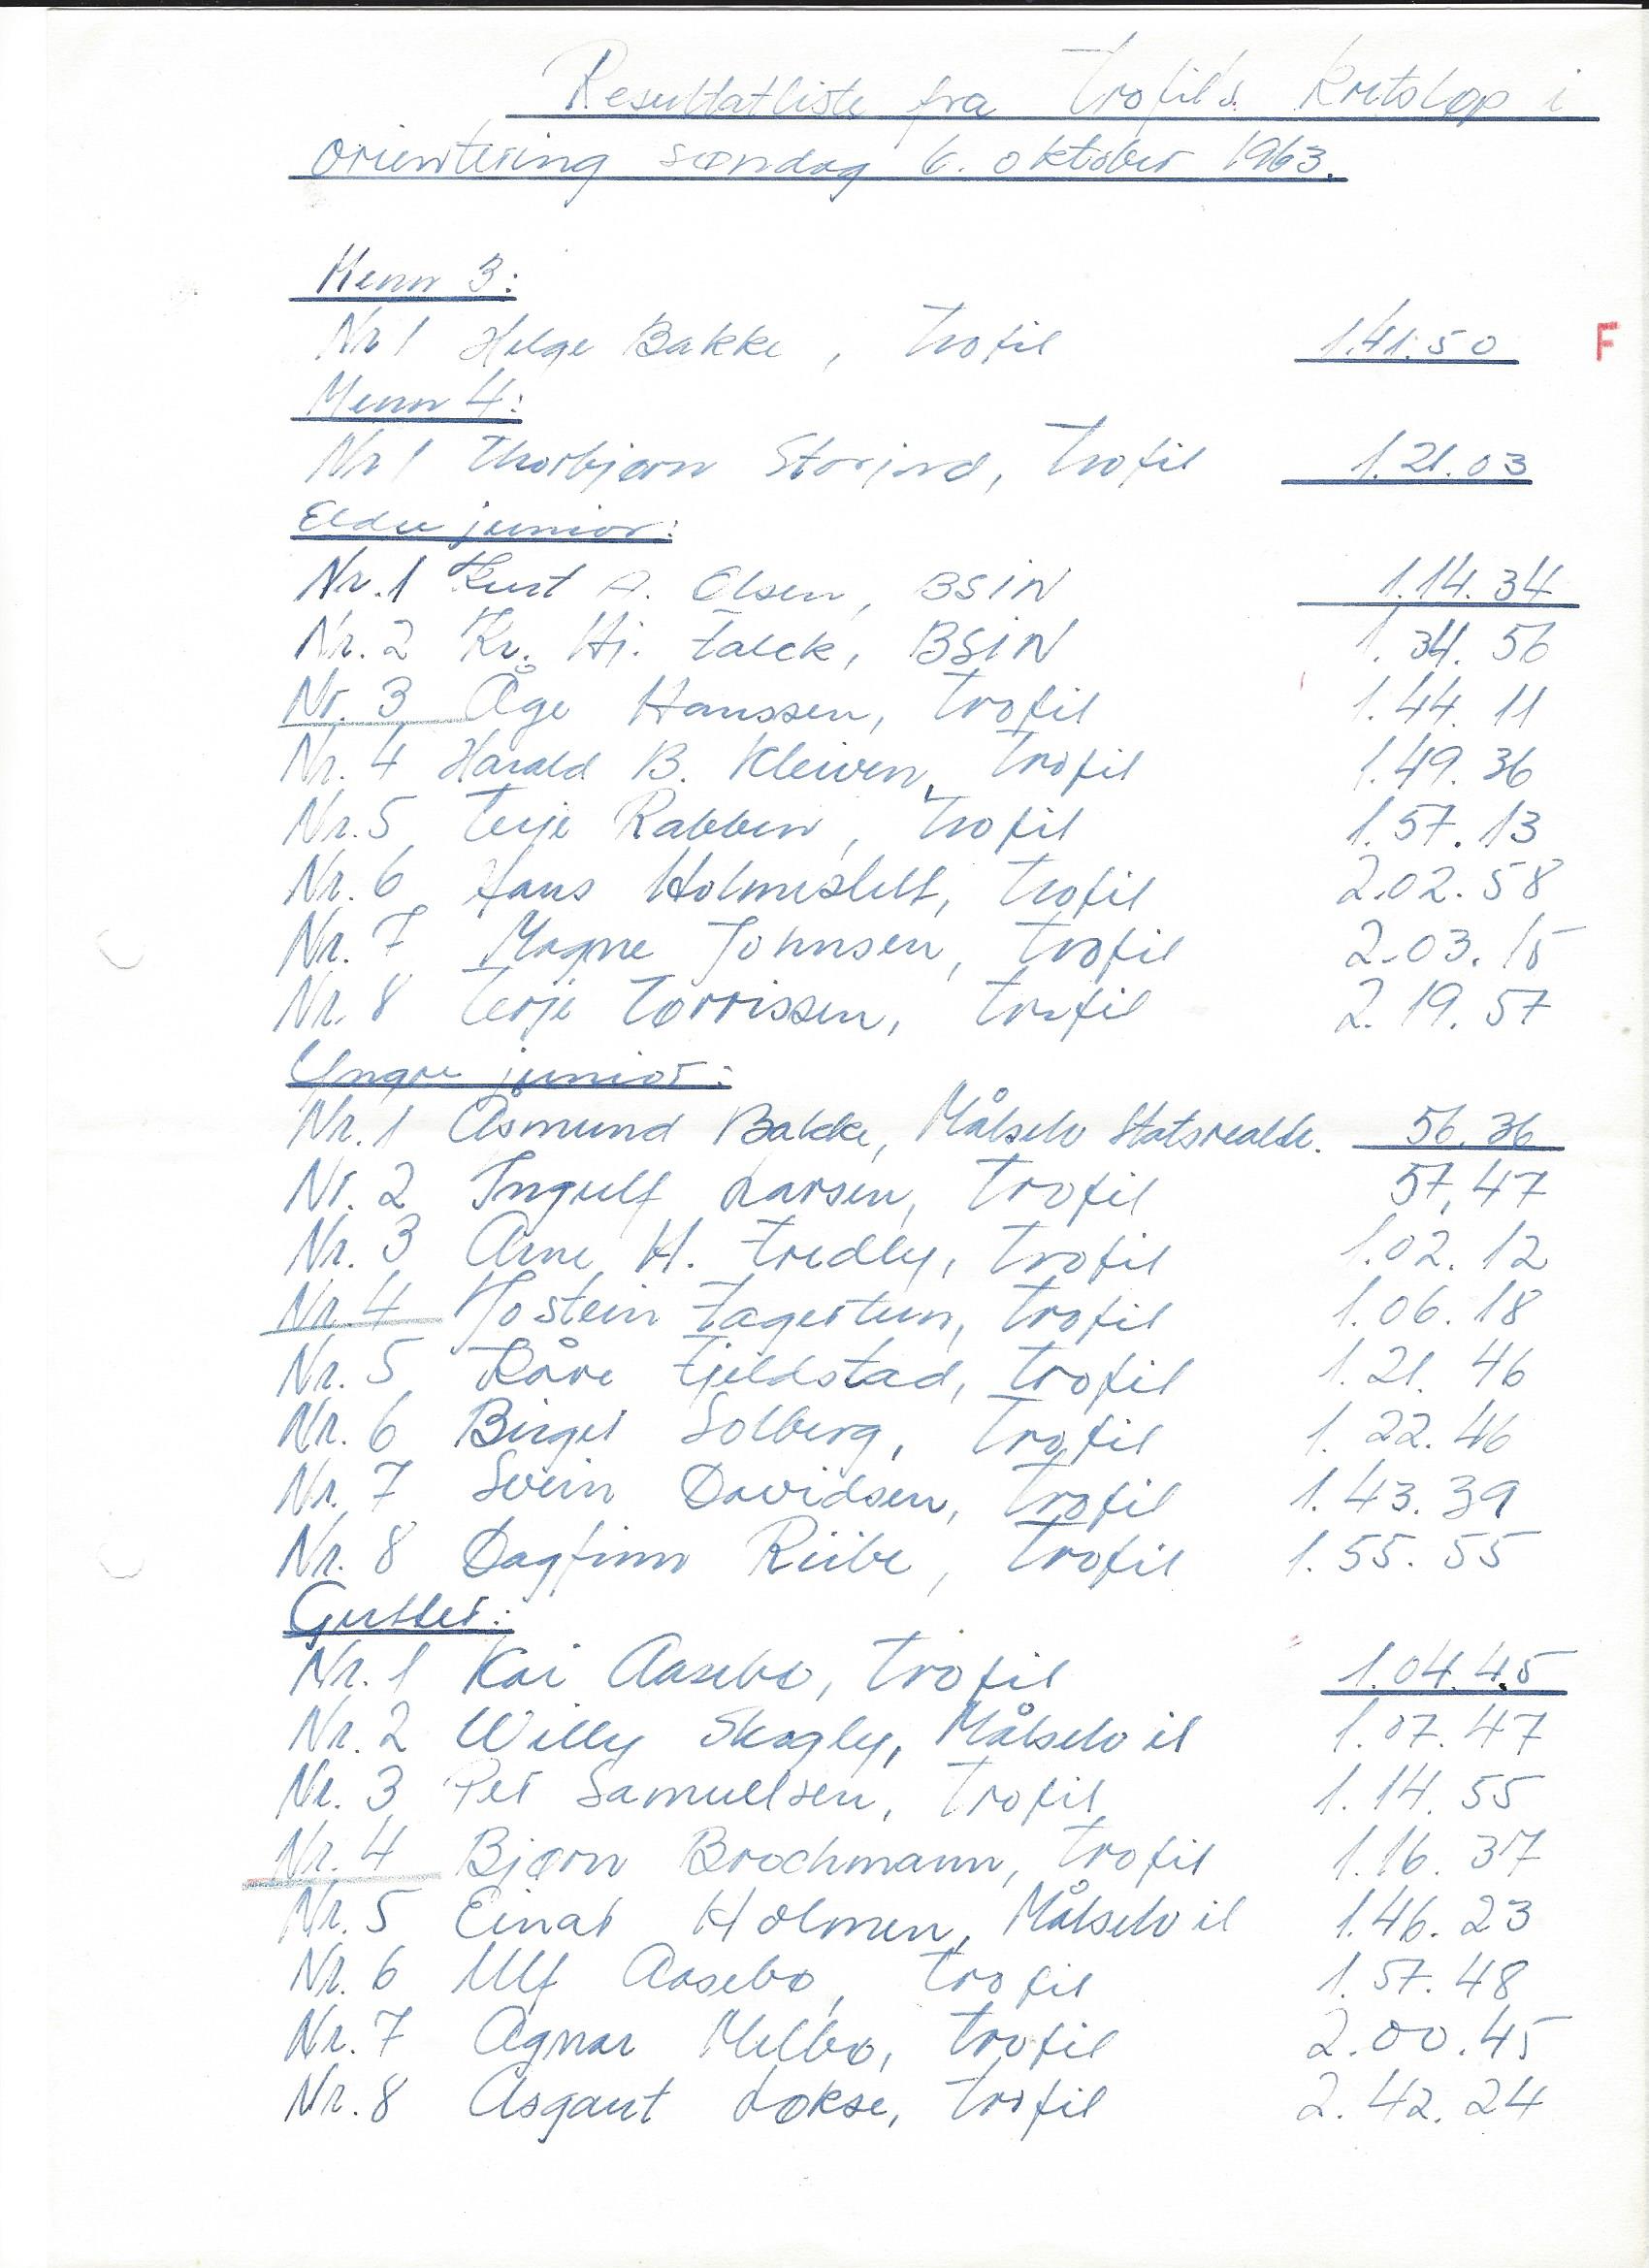 Resultatliste fra Trofil's Kretsløp i
orientering søndag 6. oktober 1963.
Menn 3:
Nr 1 Helge Bakke, Trofil 1.41.50 F
Menn 4:
Nr 1 Thorbjørn Storjord, Trofil 1.21.03
Eldre junior:
Nr. 1 Kurt A. Olsen, BSIN 1.14.34
Nr. 2 Kr. Hj. Falck, BSIN 1.34.56
Nr. 3 Åge Hanssen, Trofil 1.44.11
Nr. 4 Harald B. Kleiven, Trofil 1.49.36
Nr. 5 Terje Rabben, Trofil 1.57.13
Nr. 6 Hans Holmeslett, Trofil 2.02.58
Nr. 7 Magne Johnsen, Trofil 2.03.15
Nr. 8 Terje Tørrissen, Trofil 2.19.57
Yngre junior:
Nr. 1 Åsmund Bakke, Målselv Statsrealsk. 56.36
Nr. 2 Ingulf Larsen, Trofil 57,47
Nr. 3 Arne H. Fredly, Trofil 1.02.12
Nr. 4 Jostein Fagertun, Trofil 1.06.18
Nr. 5 Kåre Fjeldstad, Trofil 1.21.46
Nr. 6 Birger Solberg, Trofil 1.22.46
Nr. 7 Svein Davidsen, Trofil 1.43.39
Nr. 8 Dagfinn Riibe, Trofil 1.55.55
Gutter:
Nr. 1 Kai Aasebø, Trofil 1.04.45
Nr. 2 Willy Skogly, Målselv il 1.07.47
Nr. 3 Per Samuelsen, Trofil 1.14.55
Nr. 4 Bjørn Brochmann, Trofil 1.16.37
Nr. 5 Einar Holmen, Målselv il 1.46.23
Nr. 6 Ulf Aasebø, Trofil 1.57.48
Nr. 7 Agnar Melbø, Trofil 2.00.45
Nr. 8 Asgaut Løkse, Trofil 2.42.24